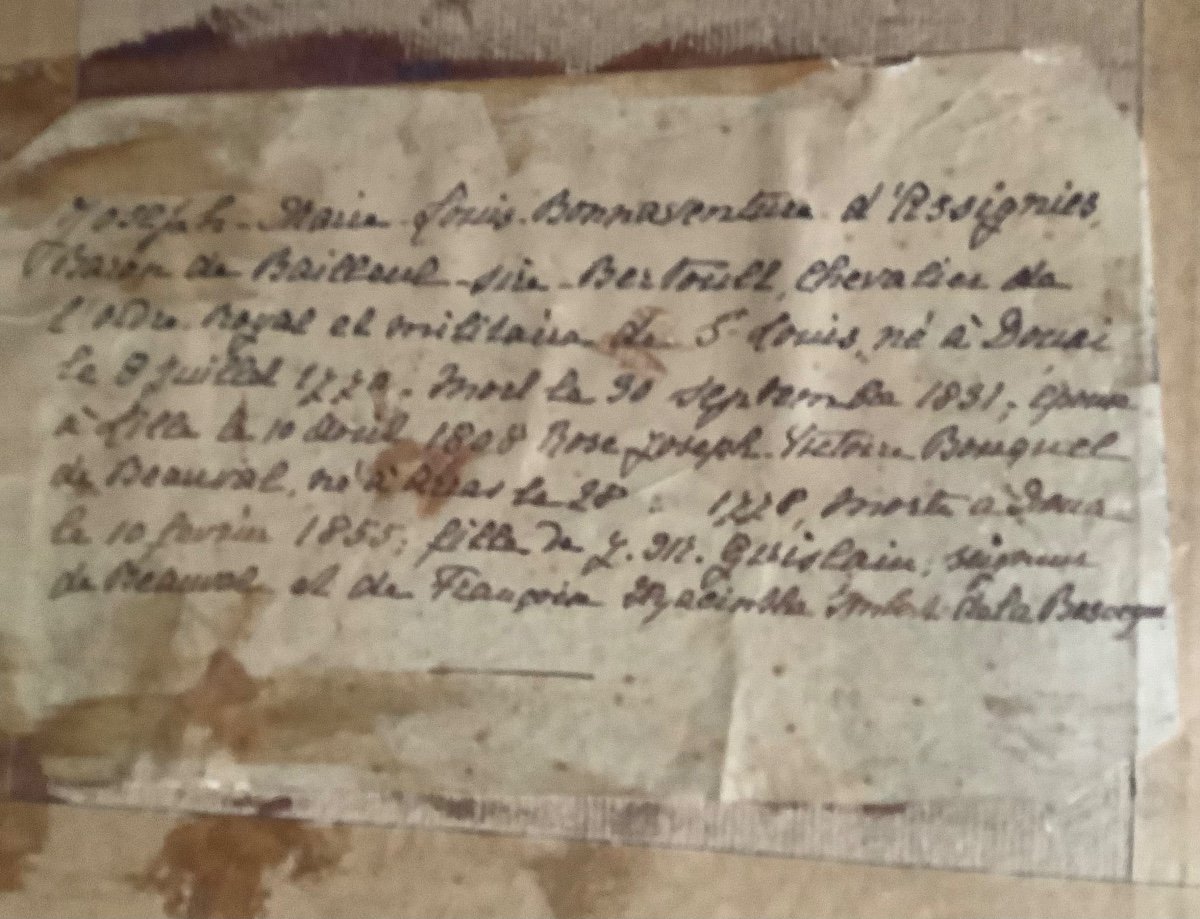 Joseph-Marie-Louis-Bonnaventure d'Assignies,
Baron de Bailleul-sire-Bertoult, Chevalier de
l'ordre Royal et militaire de St Louis, né à Douai
le 8 juillet 177. Mort le 30 septembre 1831; épousa
à Lille le 10 Aout 1808 Rose Joseph-Victoire Bouquel
de Beauval, né à Arras le 28 : 1778, morte à Douai
le 10 fevrier 1855; fille de J. M. Guislain, seigneur
de Beauval et de Françoise Hyacinthe Imbert de la Basecque